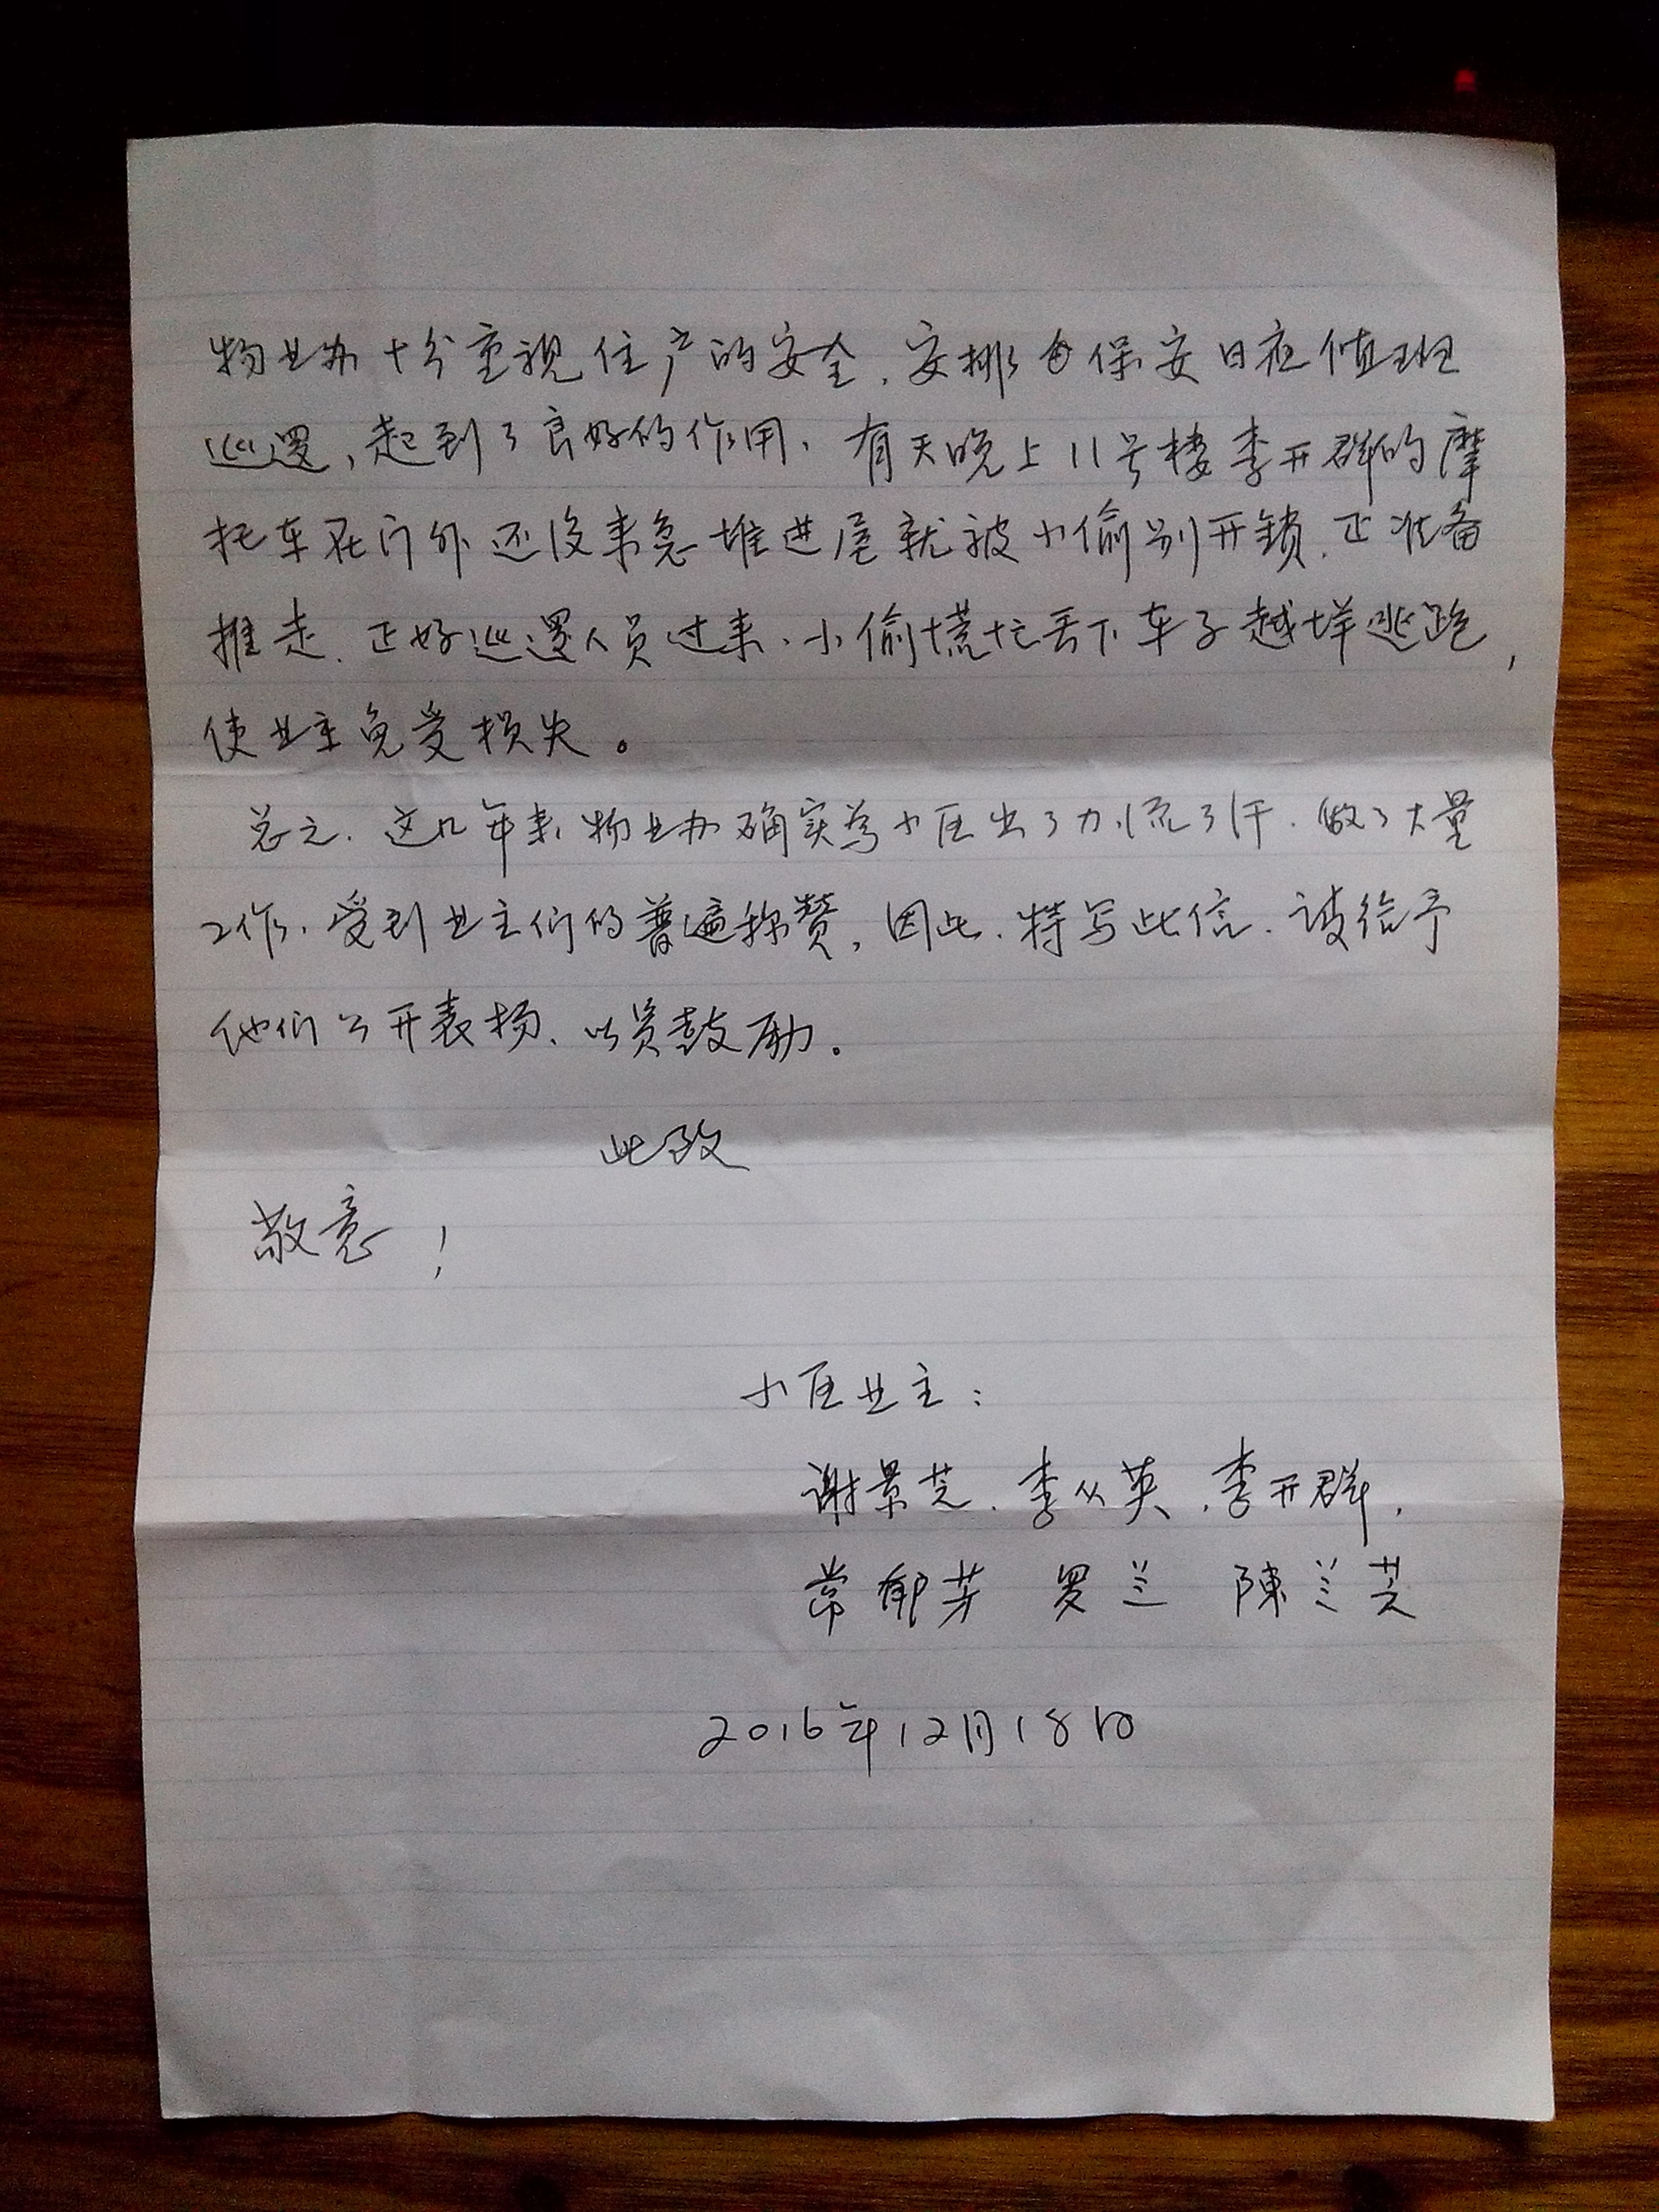 物业办十分重视住户的安全、安排保安日夜值班
巡逻，起到了良好的作用、有天晚上11号楼李开群的摩
托车在门外还没来急堆进屋就被小偷别开锁、正准备
推走、正好巡逻人员过来、小偷慌忙丢下车子越墙逃跑，
使业主免受损失。
总之、这几年来物业办确实为小区出了力，流了汗、做了大量
工作、受到业主们的普遍称赞，因此、特写此信、请给予
他们公开表扬、以资鼓励。
此致
敬意！
小区业主：
谢景芝、李从英、李开群、
常郁芳 罗兰 陳兰芝
2016年12月18日